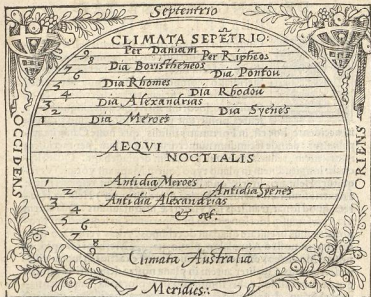 Septentrio
CLIMATA SEPĒTRIO:
Per Daniam
9 Per Ripheos
8
Dia Boristheneos
7 Dia Pontou
6
Dia Rhomes
5 Dia Rhodou
4
Dia Alexandrias
3 Dia Syenes
2
1 Dia Meroes
AEQVI
NOCTIALIS
OCCIDENS
ORIENS
1 Antidia Meroes
2 Antidia Syenes
3 Antidia Alexandrias
4 & cet.
5
6
7
8
9
Climata Australia
Meridies.